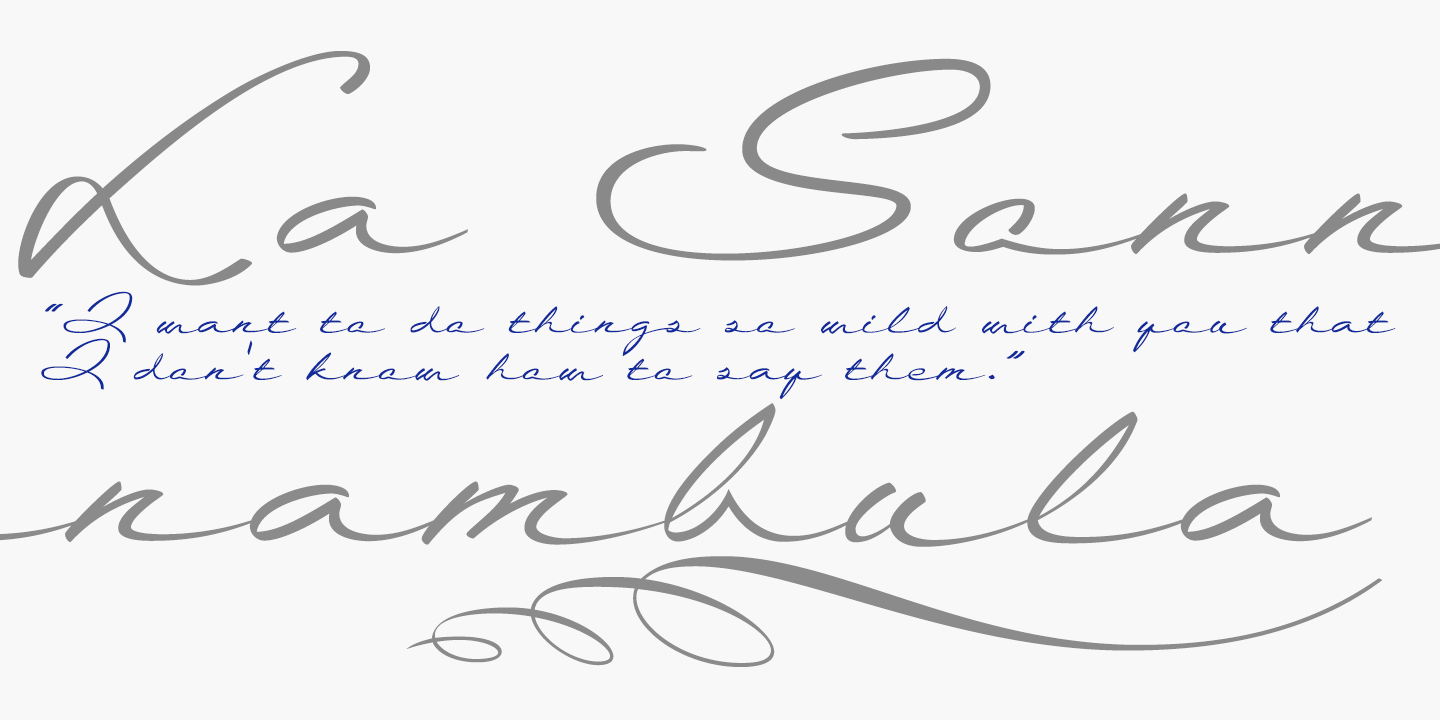 La Sonn
“I want to do things so wild with you that
I don't know how to say them.”
nambula